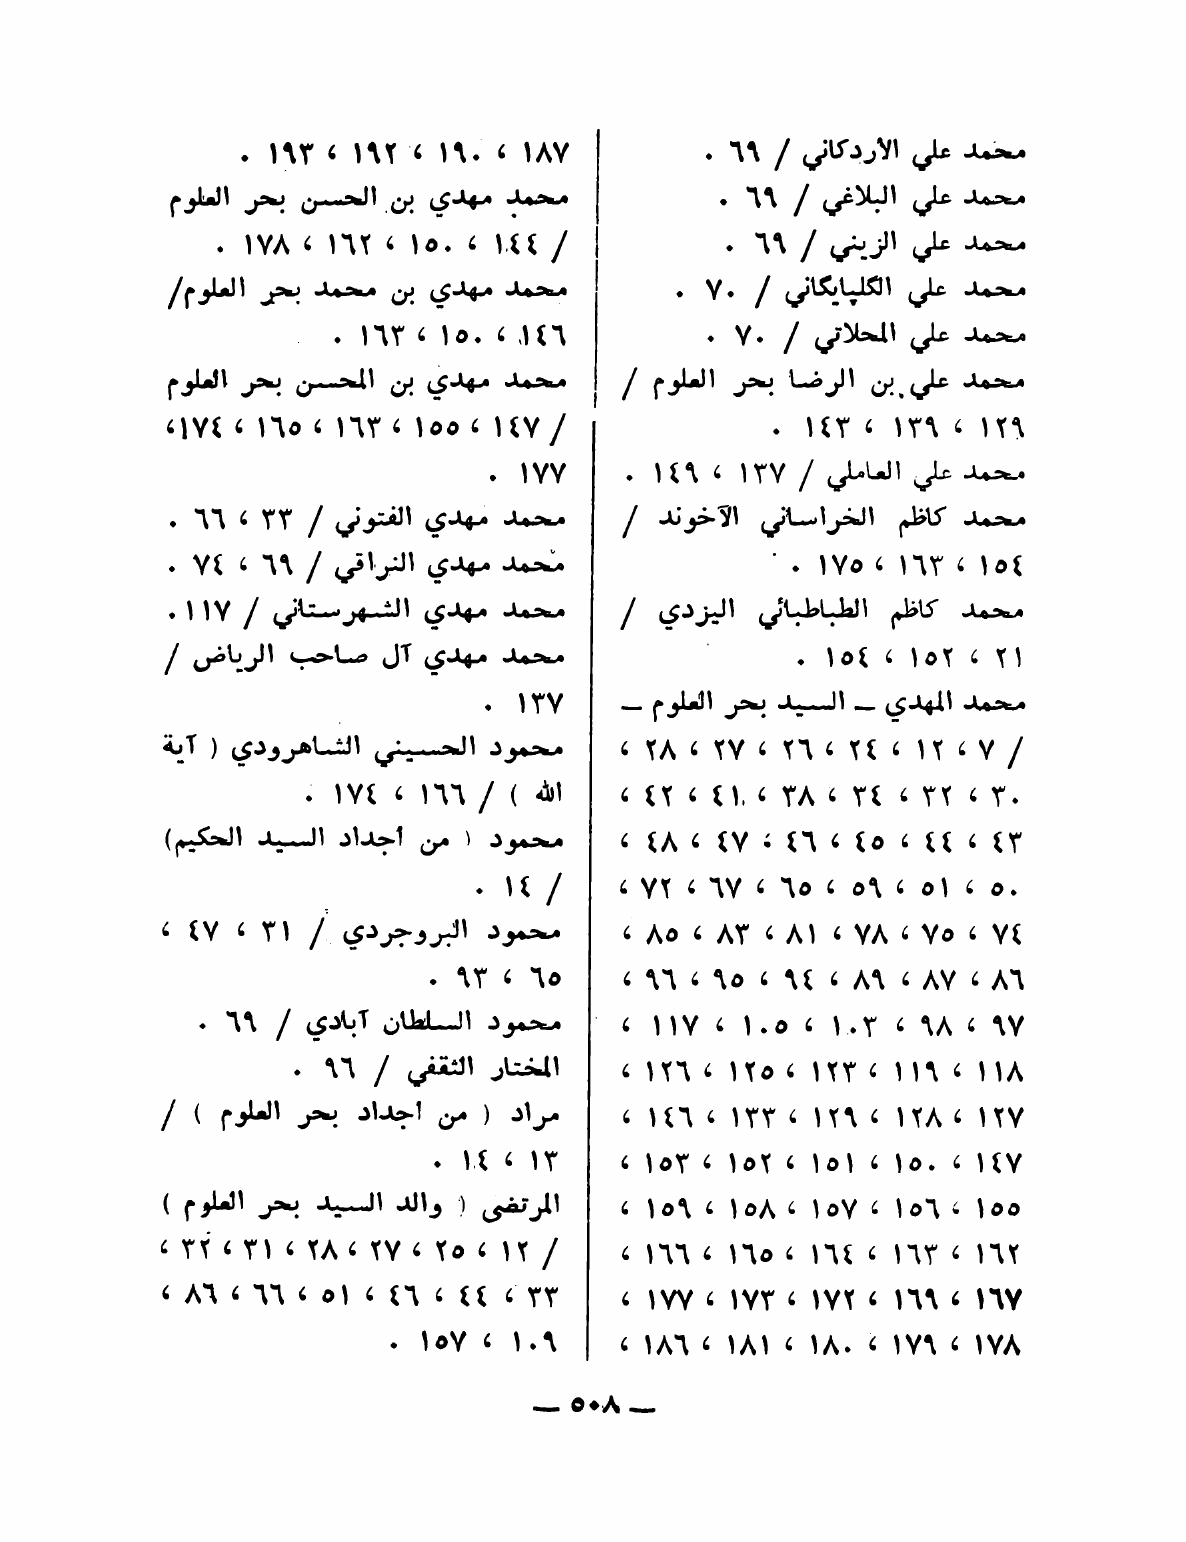 محمد علي الأردكاني / ٦٩ .
محمد علي البلاغي / ٦٩ .
محمد علي الزيني / ٦٩ .
محمد علي الگلپايگاني / ٧٠ .
محمد علي المحلاتي / ٧٠ .
محمد علي بن الرضا بحر العلوم /
١٢٩ ، ١٣٩ ، ١٤٣ .
محمد علي العاملي / ١٣٧ ، ١٤٩ .
محمد كاظم الخراساني الآخوند /
١٥٤ ، ١٦٣ ، ١٧٥ .
محمد كاظم الطباطبائي اليزدي /
٢١ ، ١٥٢ ، ١٥٤ .
محمد المهدي – السيد بحر العلوم –
/ ٧ ، ١٢ ، ٢٤ ، ٢٦ ، ٢٧ ، ٢٨ ،
٣٠ ، ٣٢ ، ٣٤ ، ٣٨ ، ٤١ ، ٤٢ ،
٤٣ ، ٤٤ ، ٤٥ ، ٤٦ ، ٤٧ ، ٤٨ ،
٥٠ ، ٥١ ، ٥٩ ، ٦٥ ، ٦٧ ، ٧٢ ،
٧٤ ، ٧٥ ، ٧٨ ، ٨١ ، ٨٣ ، ٨٥ ،
٨٦ ، ٨٧ ، ٨٩ ، ٩٤ ، ٩٥ ، ٩٦ ،
٩٧ ، ٩٨ ، ١٠٣ ، ١٠٥ ، ١١٧ ،
١١٨ ، ١١٩ ، ١٢٣ ، ١٢٥ ، ١٢٦ ،
١٢٧ ، ١٢٨ ، ١٢٩ ، ١٣٣ ، ١٤٦ ،
١٤٧ ، ١٥٠ ، ١٥١ ، ١٥٢ ، ١٥٣ ،
١٥٥ ، ١٥٦ ، ١٥٧ ، ١٥٨ ، ١٥٩ ،
١٦٢ ، ١٦٣ ، ١٦٤ ، ١٦٥ ، ١٦٦ ،
١٦٧ ، ١٦٩ ، ١٧٢ ، ١٧٣ ، ١٧٧ ،
١٧٨ ، ١٧٩ ، ١٨٠ ، ١٨١ ، ١٨٦ ،
١٨٧ ، ١٩٠ ، ١٩٢ ، ١٩٣ .
محمد مهدي بن الحسن بحر العلوم
/ ١٤٤ ، ١٥٠ ، ١٦٢ ، ١٧٨ .
محمد مهدي بن محمد بحر العلوم/
١٤٦ ، ١٥٠ ، ١٦٣ .
محمد مهدي بن المحسن بحر العلوم
/ ١٤٧ ، ١٥٥ ، ١٦٣ ، ١٦٥ ، ١٧٤،
١٧٧ .
محمد مهدي الفتوني / ٣٣ ، ٦٦ .
محمد مهدي النراقي / ٦٩ ، ٧٤ .
محمد مهدي الشهرستاني / ١١٧ .
محمد مهدي آل صاحب الرياض /
١٣٧ .
محمود الحسيني الشاهرودي ( آية
الله ) / ١٦٦ ، ١٧٤ .
محمود ( من أجداد السيد الحكيم)
/ ١٤ .
محمود البروجردي / ٣١ ، ٤٧ ،
٦٥ ، ٩٣ .
محمود السلطان آبادي / ٦٩ .
المختار الثقفي / ٩٦ .
مراد ( من أجداد بحر العلوم ) /
١٣ ، ١٤ .
المرتضى ( والد السيد بحر العلوم )
/ ١٢ ، ٢٥ ، ٢٧ ، ٢٨ ، ٣١ ، ٣٢ ،
٣٣ ، ٤٤ ، ٤٦ ، ٥١ ، ٦٦ ، ٨٦ ،
١٠٩ ، ١٥٧ .
– ٥٠٨ –